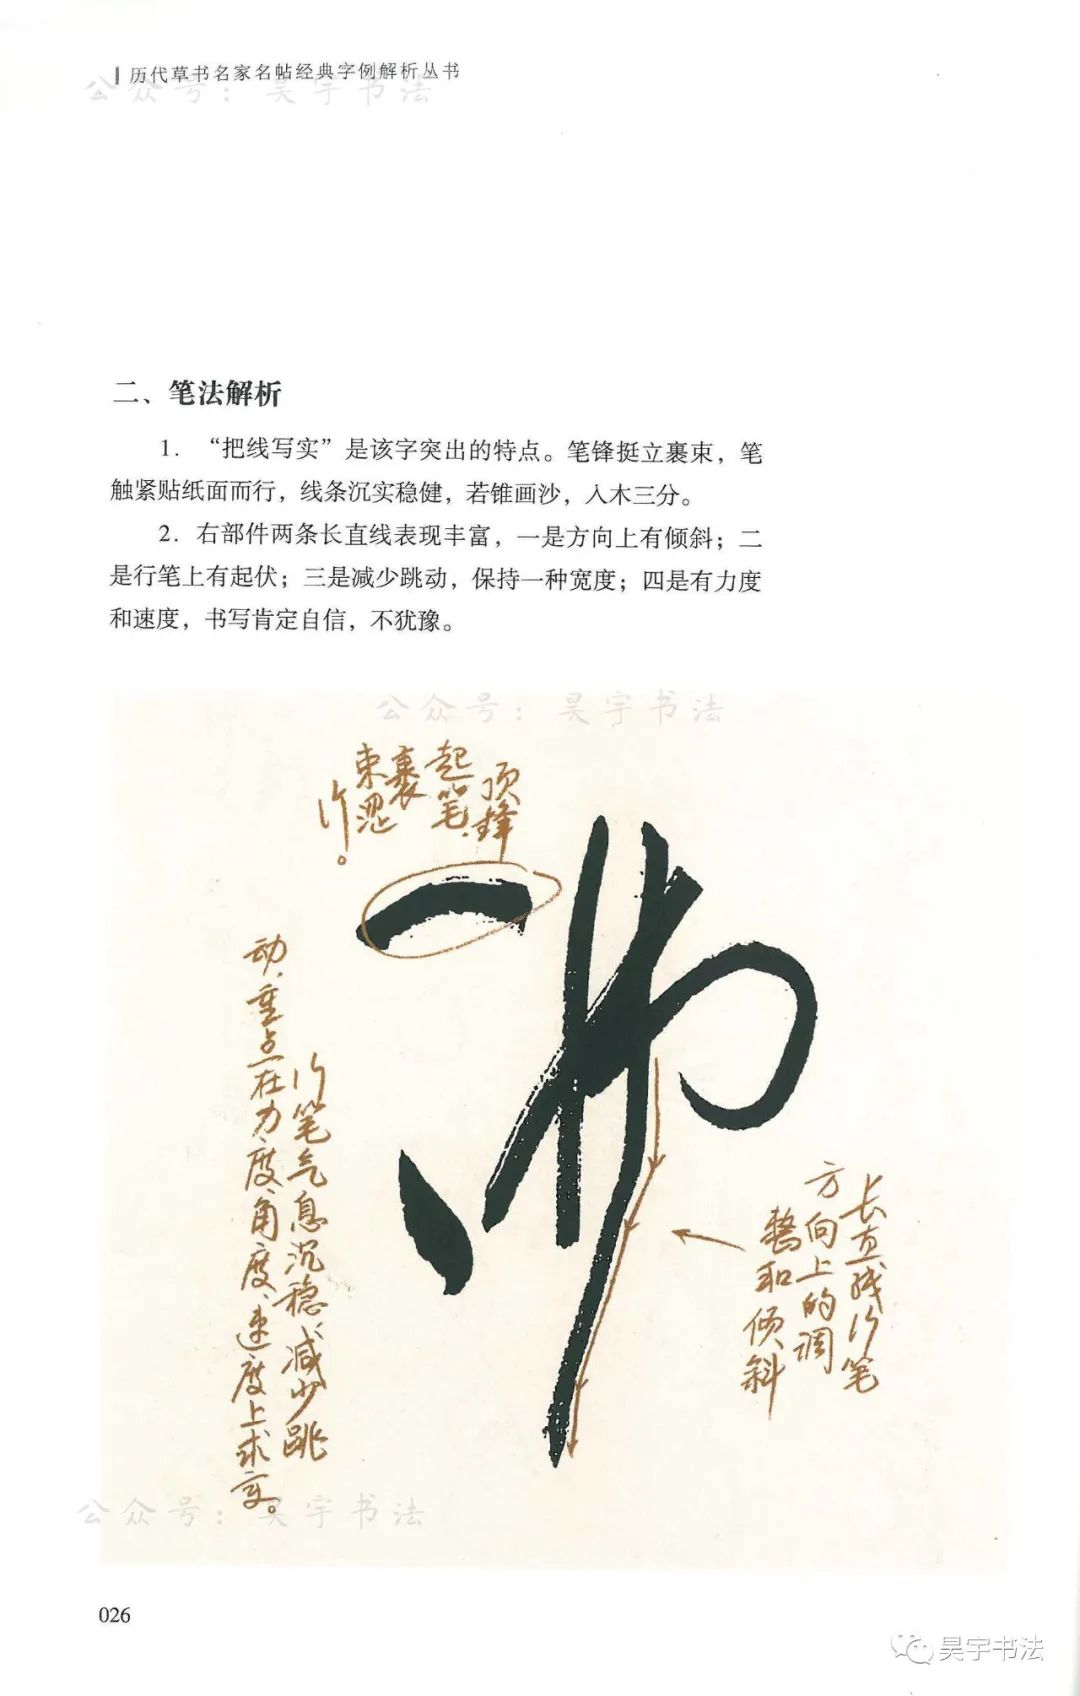 历代草书名家名帖经典字例解析丛书
公众号：昊宇书法
二、笔法解析
1．“把线写实”是该字突出的特点。笔锋挺立裹束，笔
触紧贴纸面而行，线条沉实稳健，若锥画沙，入木三分。
2．右部件两条长直线表现丰富，一是方向上有倾斜；二
是行笔上有起伏；三是减少跳动，保持一种宽度；四是有力度
和速度，书写肯定自信，不犹豫。
公众号：昊宇书法
顶锋
起笔，
裹
束逆
行。
长直线行笔
方向上的调
整和倾斜
行笔气息沉稳，减少跳
动，重点在力度、角度、速度上求变。
公众号：昊宇书法
026
昊宇书法